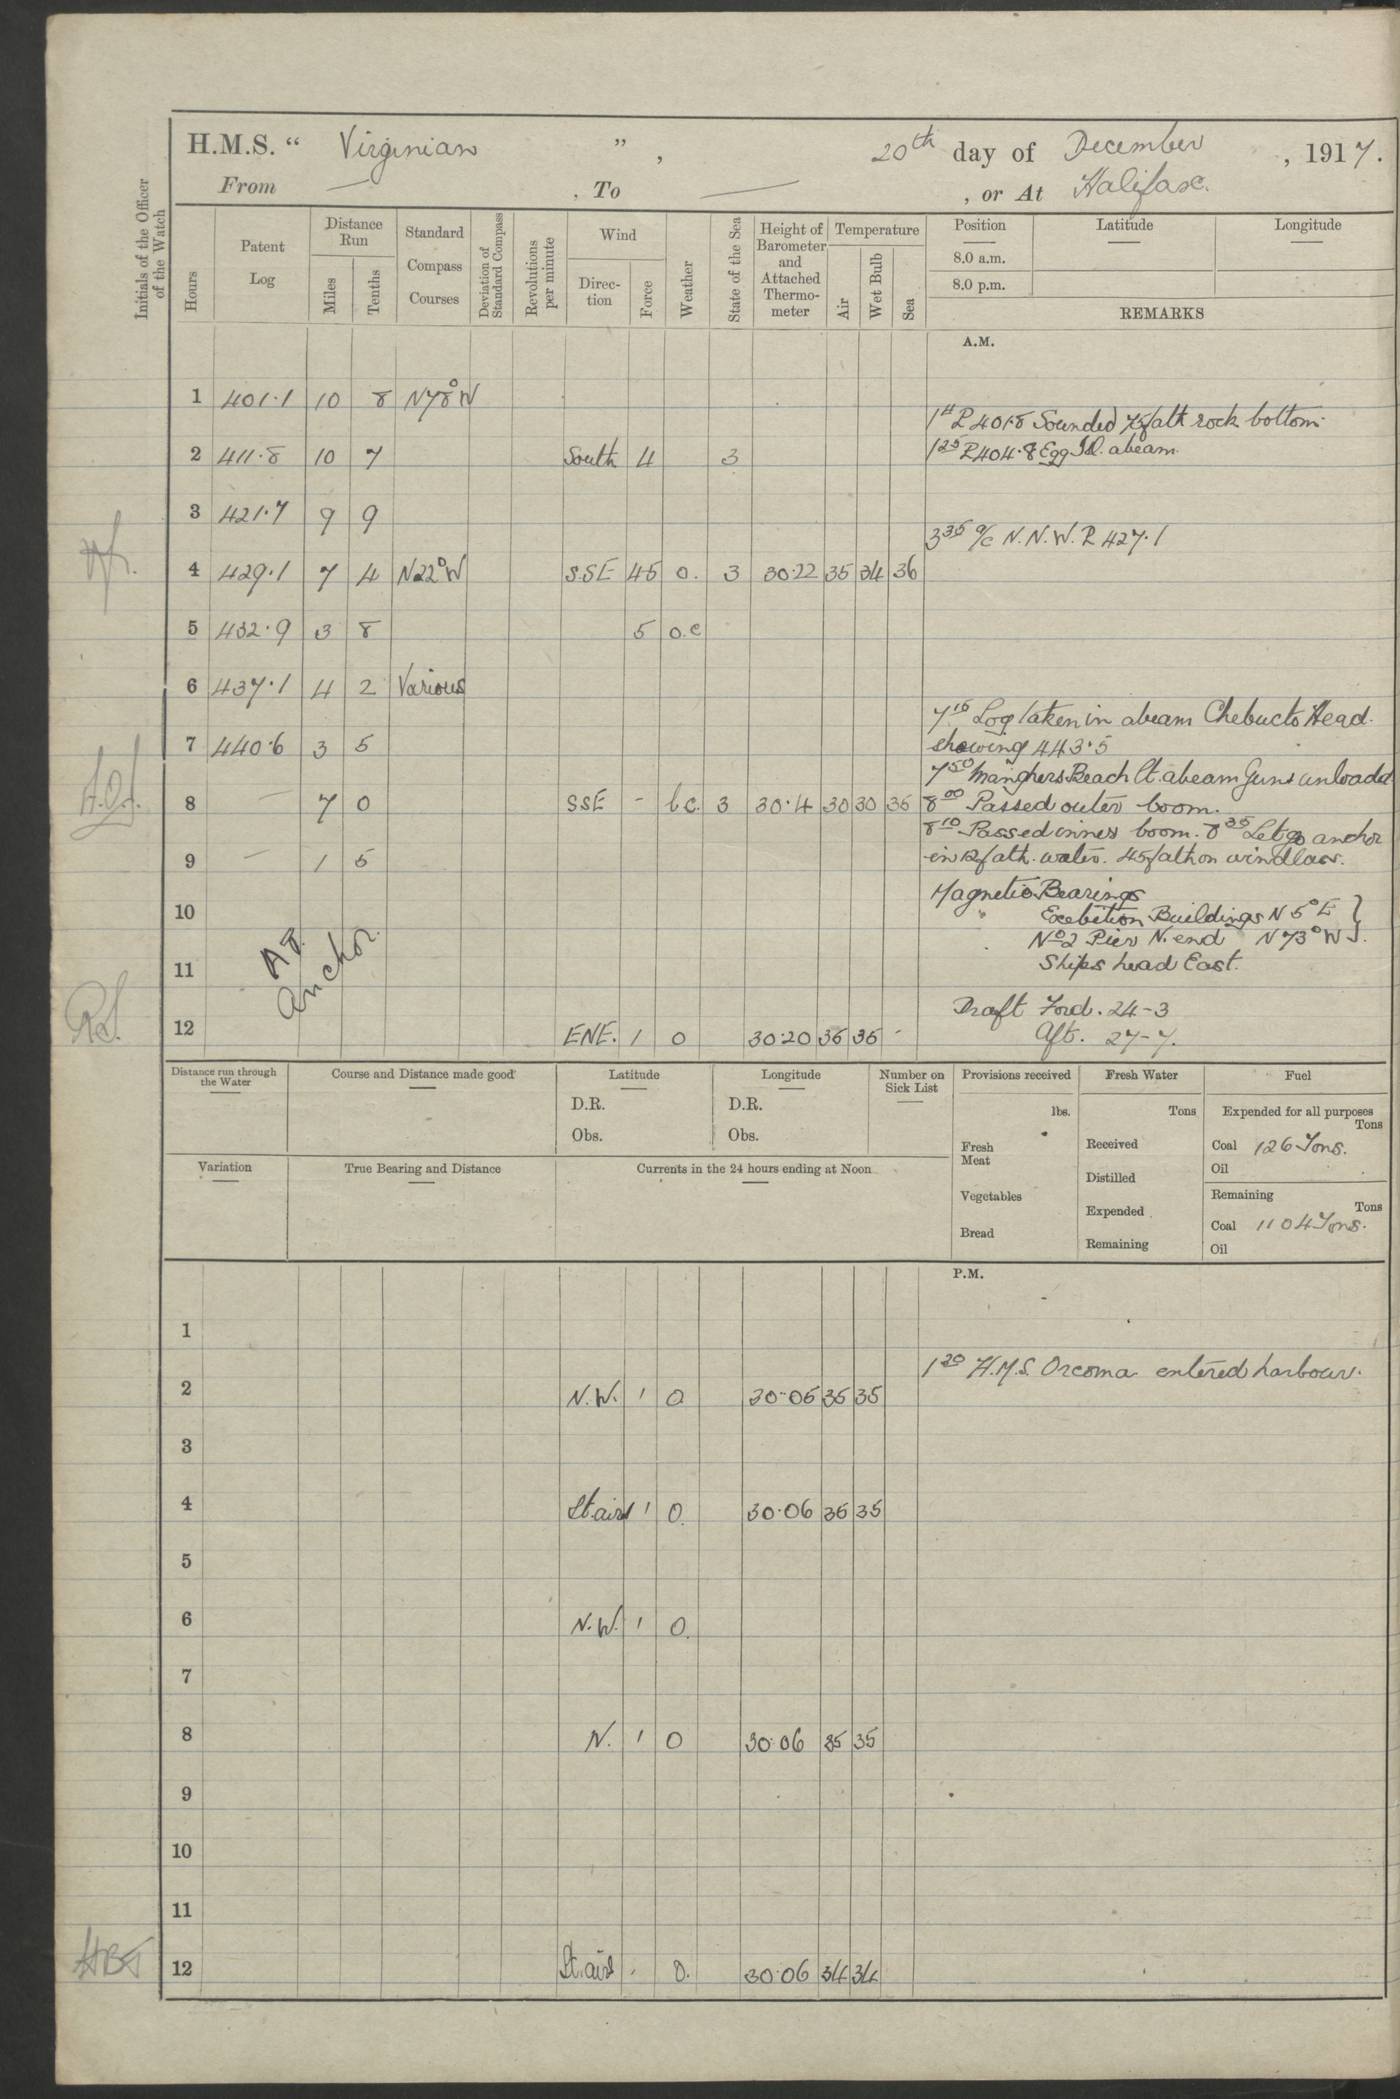 H.M.S. “ Virginian ” , 20th day of December , 1917.
From — , To — , or At Halifax.
Initials of the Officer of the Watch
Hours
Patent Log
Distance Run
Miles
Tenths
Standard Compass Courses
Deviation of Standard Compass
Revolutions per minute
Wind
Direction
Force
Weather
State of the Sea
Height of Barometer and Attached Thermometer
Temperature
Air
Wet Bulb
Sea
Position
8.0 a.m.
8.0 p.m.
Latitude
Longitude
REMARKS
A.M.
1 401·1 10 8 N78°W
1 P 401·8 Sounded 75 fath rock bottom.
2 411·8 10 7 South 4 3
1 25 P 404·8 Egg Isl. abeam.
3 421·7 9 9
3 35 a/c N.N.W. P 427·1
4 429·1 7 4 N22°W S.SE 45 o. 3 30·22 35 34 36
5 432·9 3 8 5 o.c
6 437·1 4 2 Various
7 15 Log taken in abeam Chebucto Head.
7 440·6 3 5
showing 443·5
7 50 Manghers Beach Lt. abeam Guns unloaded
8 — 7 0 SSE - bc. 3 30·4 30 30 36
8 00 Passed outer boom.
8 10 Passed inner boom. 8 35 Let go anchor
9 — 1 5
in 12 fath. water. 45 fath on windlass.
Magnetic Bearings
10
Exebition Buildings N 5° E }
No 2 Pier N. end N 73° W }.
11
At Anchor.
Ships head East.
Draft Ford. 24-3
12 ENE. 1 o 30·20 36 36 -
Aft. 27-7.
Distance run through the Water
Course and Distance made good
Latitude
D.R.
Obs.
Longitude
D.R.
Obs.
Number on Sick List
Provisions received
lbs.
Fresh Meat
Vegetables
Bread
Fresh Water
Tons
Received
Distilled
Expended
Remaining
Fuel
Expended for all purposes
Tons
Coal 126 Tons.
Oil
Remaining
Tons
Coal 1104 Tons.
Oil
Variation
True Bearing and Distance
Currents in the 24 hours ending at Noon
P.M.
1
1 20 H.M.S. Orcoma entered harbour.
2 N.W. 1 o 30·06 36 35
3
4 Lt. airs 1 o. 30·06 36 35
5
6 N.W. 1 o.
7
8 N. 1 o 30·06 35 35
9
10
11
HBT 12 Lt. airs - o. 30·06 34 34